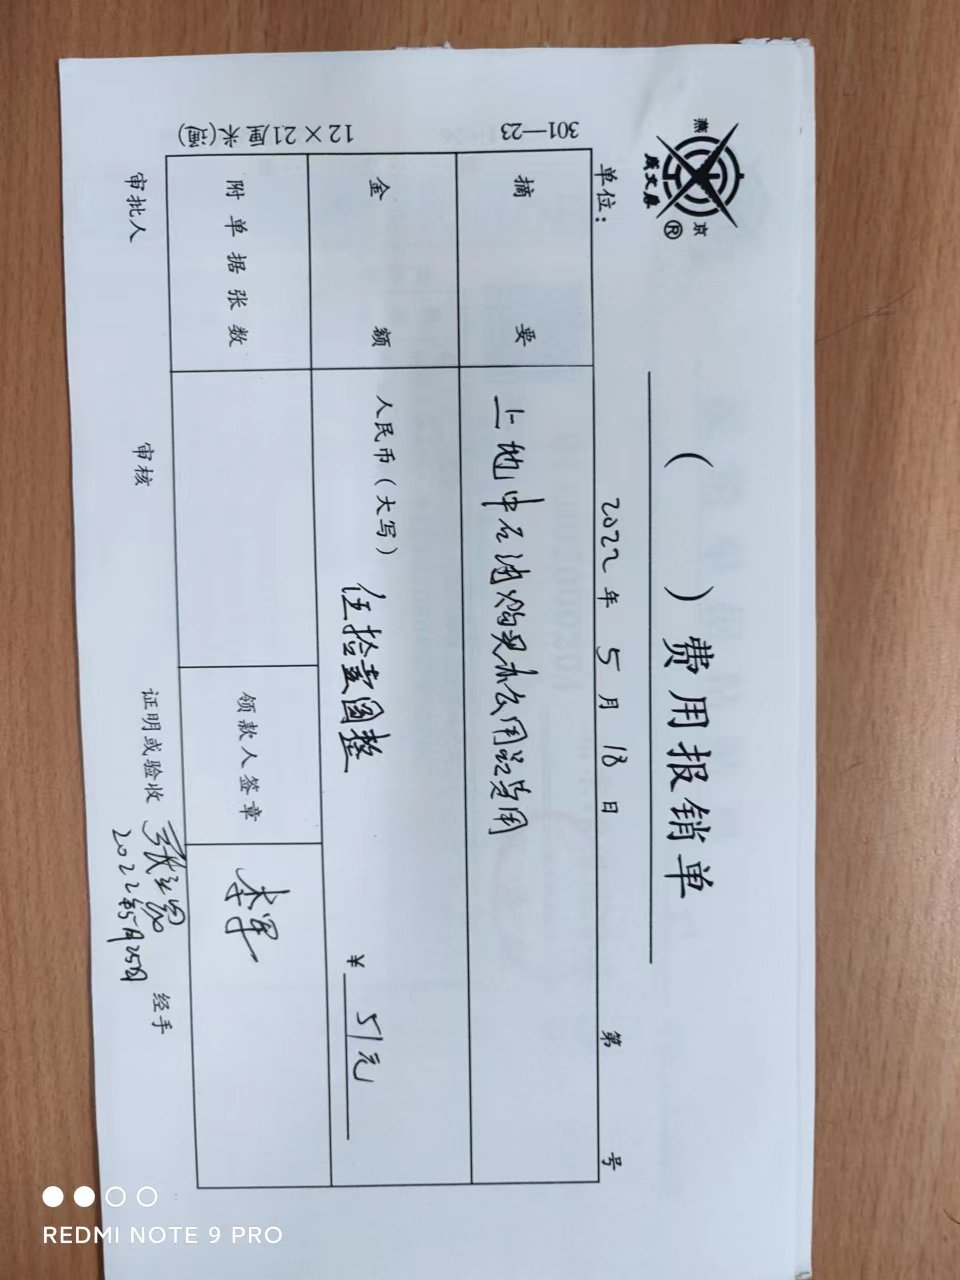 燕
京
®
成文厚
(　　)费用报销单
单位：
2022年5月18日
第　号
301—23
摘要
上地中石油购买办公用品费用
金额
人民币（大写）
伍拾壹圆整
¥ 51元
12×21厘米(通)
附单据张数
领款人签章
李军
审批人
审核
证明或验收
张
2022年5月25日
经手
REDMI NOTE 9 PRO